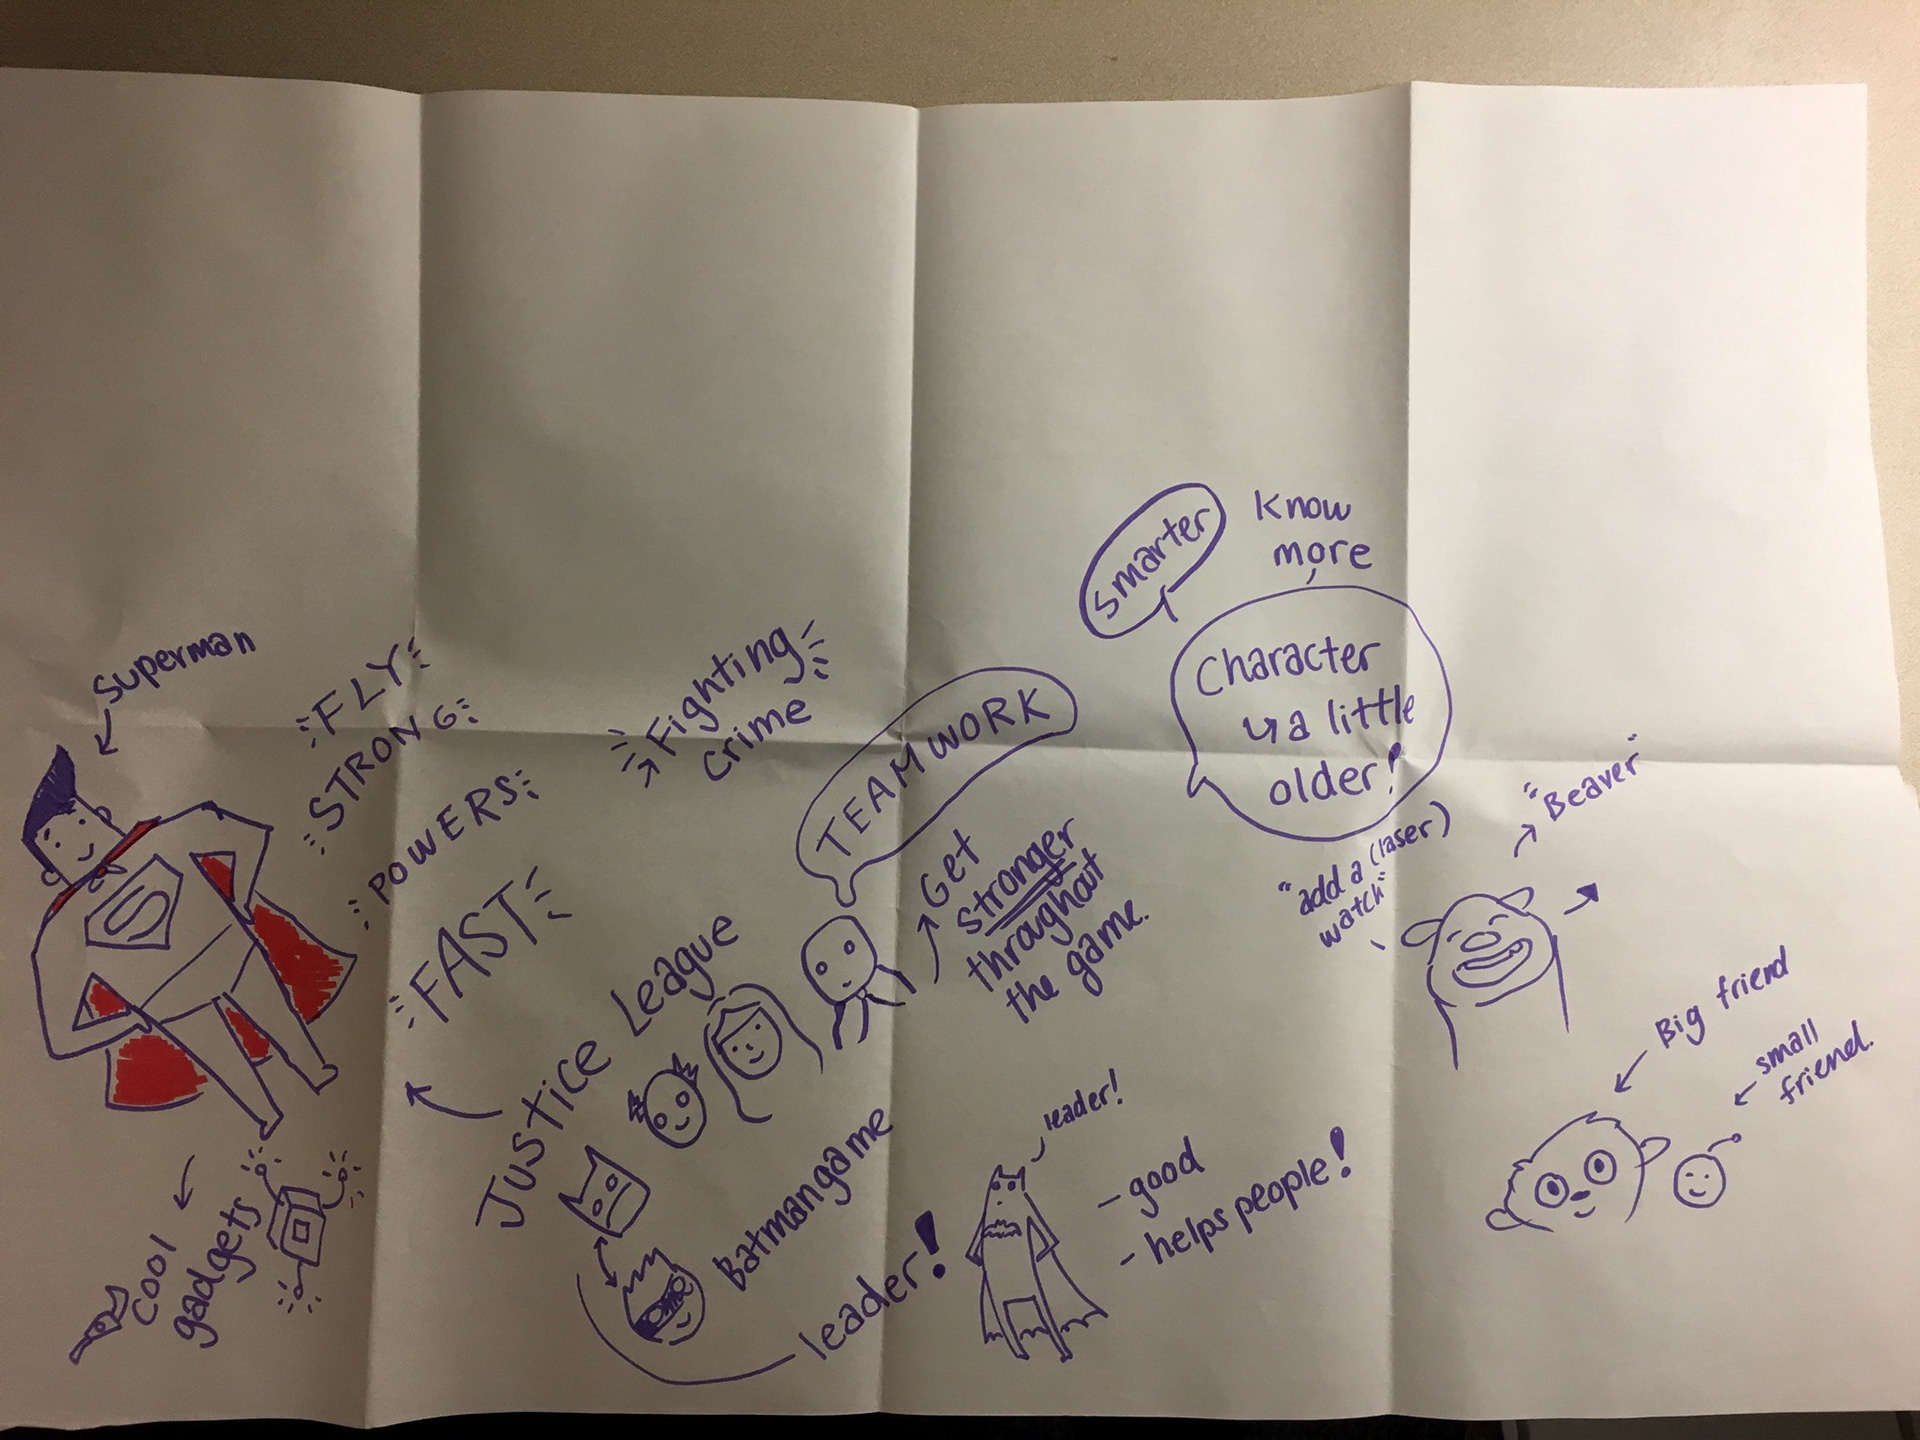 Superman
S
FLY
STRONG
POWERS
FAST
Fighting
crime
TEAMWORK
Get
stronger
throughout
the game.
smarter
Know
more
Character
↳ a little
older!
"add a (laser)
watch"
"Beaver"
Big friend
small
friend.
Justice League
Batmangame
leader!
leader!
- good
- helps people!
cool
gadgets